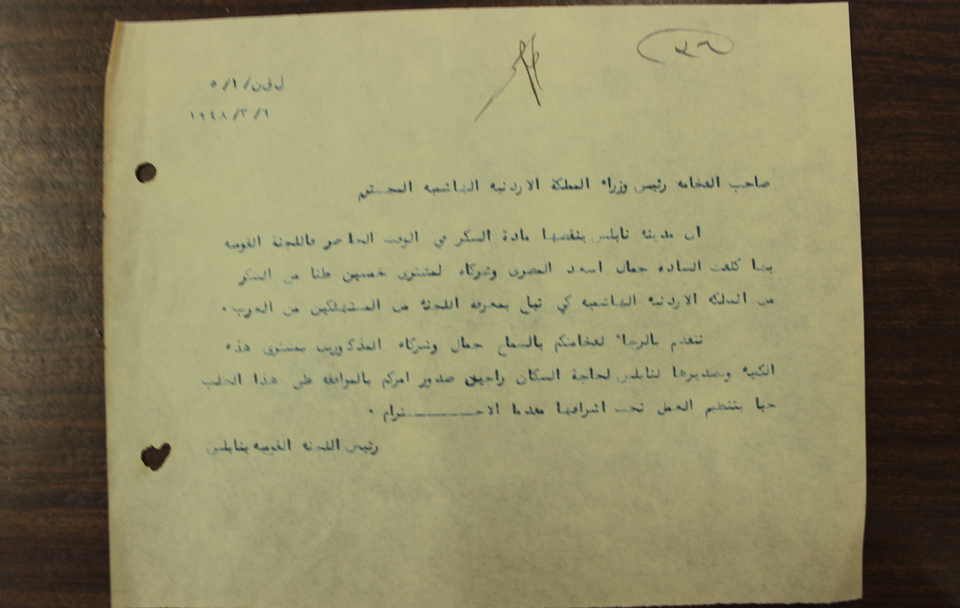 ٣٦
ل ق ن/ ١/ ٥
١٩٤٨/٣/٩
صاحب الفخامه رئيس وزراء المملكة الاردنيه الهاشميه المحـــترم
ان مدينة نابلس ينقصها مادة السكر في الوقت الحاضر فاللجنة القوميه
بها كلفت الساده جمال اسعد المصرى وشركاه لمشترى خمسين طنا من السكر
من المملكة الاردنيه الهاشميه كي تباع بمعرفة اللجنة من المستهلكين من العرب .
نتقدم بالرجاء لفخامتكم بالسماح جمال وشركاه المذكورين بمشترى هذه
الكميه وتصديرها لنابلس لحاجة السكان راجين صدور امركم بالموافقه على هذا الطلب
حبا بتنظيم العمل تحت اشرافها مقدما الاحـــــــــترام .
رئيس اللجنه القوميه بنابلس